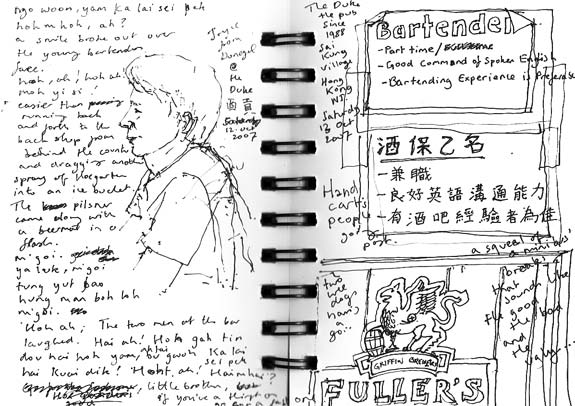 ngo woon, yam ka lai sei peh
hoh m hoh, ah?
a smile broke out over
the young bartender
face.
hoh, ah, hoh ah.
moh yi si!
easier than
running back
and forth to the
back shop
behind the
and dragging another
spray of Hoegarten
into an ice bucket.
The pilsner
came along with
a beermat in a
flash.
m'goi.
ya luk, m'goi
tung yut bao
hung man boh loh
m'goi.
Hoh ah, The two men at the bar
laughed. Hai ah! Hoh gah tin
dou hai hoh yam, Ka lai
hai kuai dik! Hoh, ah! Hai mhai?
little brother,
if you've a thirst on
Joyce
born
Dungel
@
the
Duke
西貢
Saturday
12. Oct
2007
The Duke
the pub
Since
1988
Sai
Kung
Village
Hong
Kong
NT.
Saturday
13 Oct
2007
Bartender
- Part time/
- Good Command of Spoken English
- Bartending Experience is Preferable
酒保乙名
-兼職
-良好英語溝通能力
-有酒吧經驗者為佳
Hand
carts
people
go
post.
a squeel of
breaks
that
sound like
the good
the bad
and
the
two
wee
dogs
a
go...
GRIFFIN BREWERY
FULLER'S